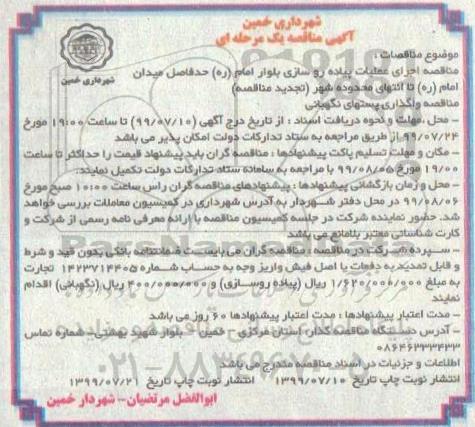 شهرداری خمین
آگهی مناقصه یک مرحله ای
شهرداری خمین
موضوع مناقصات :
مناقصه اجرای عملیات پیاده رو سازی بلوار امام (ره) حدفاصل میدان
امام (ره) تا انتهای محدوده شهر (تجدید مناقصه)
مناقصه واگذاری پستهای نگهبانی
- محل ،مهلت و نحوه دریافت اسناد : از تاریخ درج آگهی (۹۹/۰۷/۱۰) تا ساعت ۱۹:۰۰ مورخ
۹۹/۰۷/۲۴ از طریق مراجعه به ستاد تدارکات دولت امکان پذیر می باشد
- مکان و مهلت تسلیم پاکت پیشنهادها : مناقصه گران باید پیشنهاد قیمت را حداکثر تا ساعت
۱۹/۰۰ مورخ ۹۹/۰۸/۰۵ با مراجعه به سامانه ستاد تدارکات دولت تکمیل نمایند.
- محل و زمان بازگشائی پیشنهادها : پیشنهادهای مناقصه گران راس ساعت ۱۰:۰۰ صبح مورخ
۹۹/۰۸/۰۶ در محل دفتر شهردار به آدرس شهرداری در کمیسیون معاملات بررسی خواهد
شد. حضور نماینده شرکت در جلسه کمیسیون مناقصه با ارائه معرفی نامه رسمی از شرکت و
کارت شناسائی معتبر بلامانع می باشد
- سپرده شرکت در مناقصه : مناقصه گران می بایست ضمانتنامه بانکی بدون قید و شرط
و قابل تمدید به دفعات یا اصل فیش واریز وجه به حساب شماره ۱۴۲۳۷۱۴۴۰۵ تجارت
به مبلغ ۱/۶۲۰/۰۰۰/۰۰۰ ریال (پیاده روسازی) و ۴۰۰/۰۰۰/۰۰۰ ریال (نگهبانی) اقدام
نمایند
- مدت اعتبار پیشنهادها : مدت اعتبار پیشنهادها ۶۰ روز می باشد
- آدرس دستگاه مناقصه گذار: استان مرکزی - خمین - بلوار شهید بهشتی- شماره تماس
۰۸۶۴۶۳۳۳۴۳۳
اطلاعات و جزئیات در اسناد مناقصه مندرج می باشد
انتشار نوبت چاپ تاریخ ۱۳۹۹/۰۷/۱۰ انتشار نوبت چاپ تاریخ ۱۳۹۹/۰۷/۲۱
ابوالفضل مرتضیان- شهردار خمین
۰۲۱-۸۸۳۴۹۶۷۰-۵